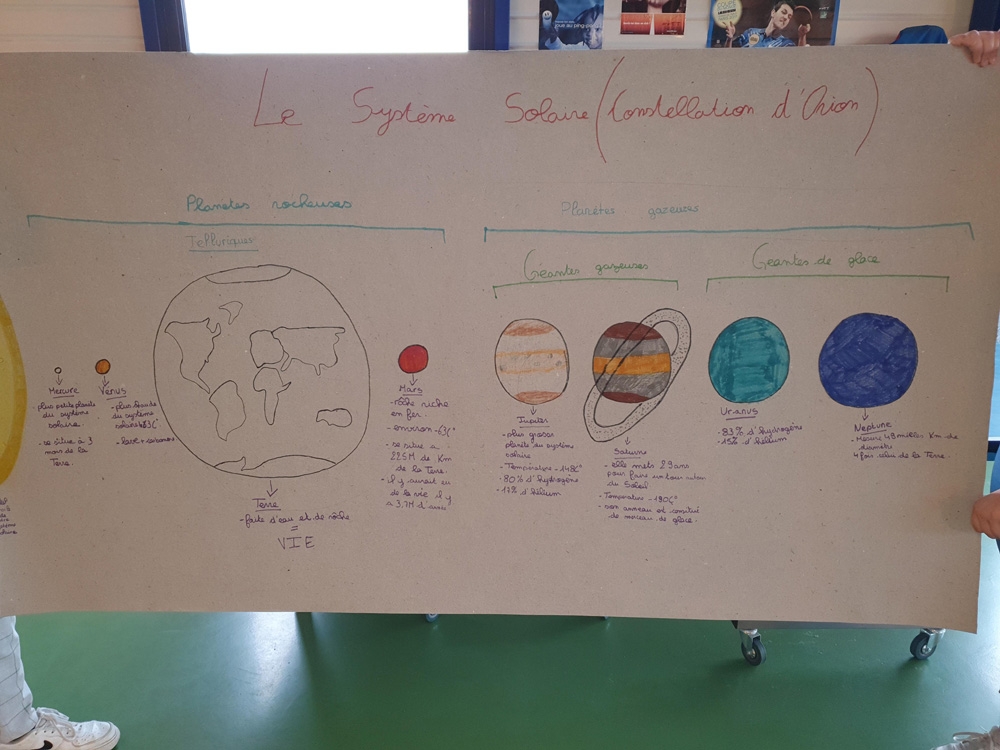 Le Système Solaire (Constellation d'Orion)
Planètes rocheuses
Planètes gazeuses
Telluriques
Géantes gazeuses
Géantes de glace
Mercure
- plus petite planète
du système
solaire.
- se situe à 3
mois de la
Terre.
Vénus
- plus chaude
du système
solaire 463C°
Terre
- faite d'eau et de roche
=
VIE
Mars
- roche riche
en fer.
- environ -63C°
- se situe a
225M de Km
de la Terre.
- il y aurait eu
de la vie il y
a 3,7M d'années
Jupiter
- plus grosse
planète du système
solaire
- Température -148C°
- 80% d'hydrogène
- 17% d'hélium
Saturne
- elle mets 29 ans
pour faire un tour autour
du Soleil
- Température -190C°
- son anneau est constitué
de morceau de glace.
Uranus
- 83% d'hydrogène
- 15% d'hélium
Neptune
- Mesure 49 milles Km de
diamètre
4 fois celui de la Terre.